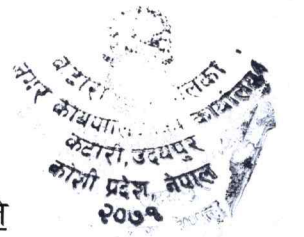 कटारी
नगर कार्यपालिकाको कार्यालय
कटारी, उदयपुर
कोशी प्रदेश, नेपाल
२०७१